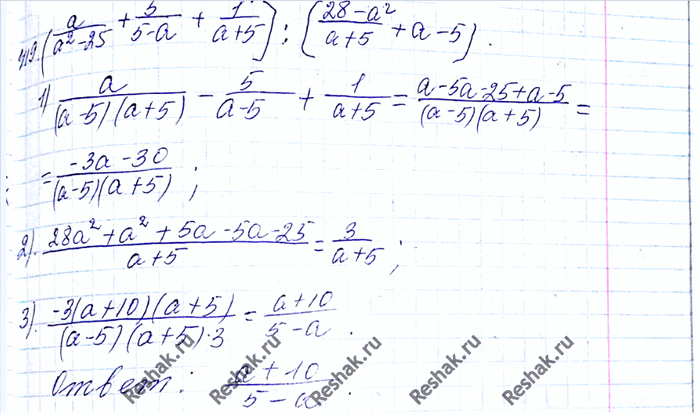 419. (a/(a²-25) + 5/(5-a) + 1/(a+5)) : ((28-a²)/(a+5) + a-5).
1) a/((a-5)(a+5)) - 5/(a-5) + 1/(a+5) = (a-5a-25+a-5)/((a-5)(a+5)) =
= (-3a-30)/((a-5)(a+5)) ;
2). (28a²+a²+5a-5a-25)/(a+5) = 3/(a+5) ;
3). (-3(a+10)(a+5))/((a-5)(a+5)·3) = (a+10)/(5-a) .
Ответ: (a+10)/(5-a) .
Reshak.ru Reshak.ru Reshak.ru Reshak.ru Reshak.ru Reshak.ru